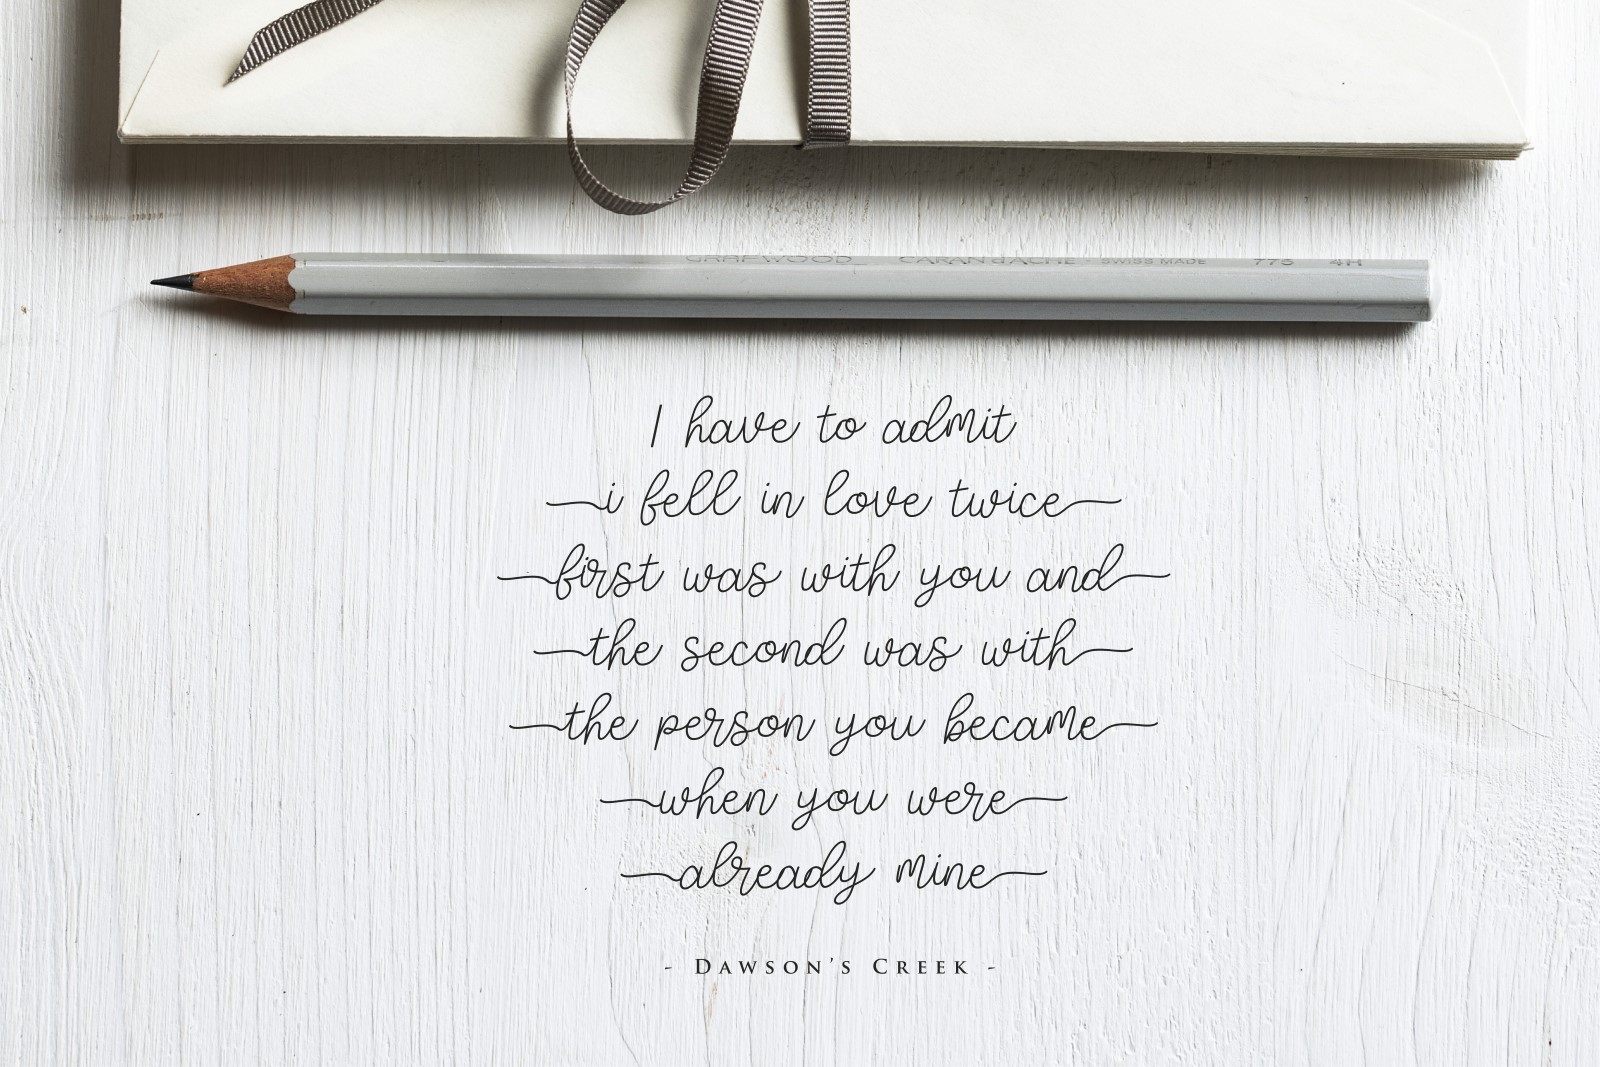 GRAFWOOD CARAN d'ACHE SWISS MADE 775 4H
I have to admit
i fell in love twice
first was with you and
the second was with
the person you became
when you were
already mine
- Dawson's Creek -